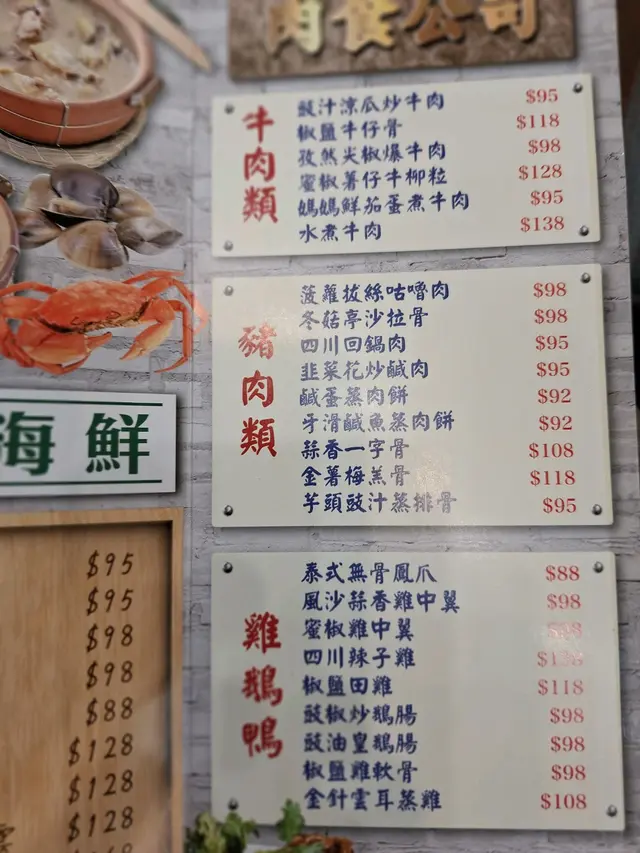 肉食公司
牛肉類
豉汁涼瓜炒牛肉 $95
椒鹽牛仔骨 $118
孜然尖椒爆牛肉 $98
蜜椒薯仔牛柳粒 $128
媽媽鮮茄蛋煮牛肉 $95
水煮牛肉 $138
豬肉類
菠蘿拔絲咕嚕肉 $98
冬菇亭沙拉骨 $98
四川回鍋肉 $95
韭菜花炒鹹肉 $95
鹹蛋蒸肉餅 $92
牙滑鹹魚蒸肉餅 $92
蒜香一字骨 $108
金薯梅羔骨 $118
芋頭豉汁蒸排骨 $95
雞鵝鴨
泰式無骨鳳爪 $88
風沙蒜香雞中翼 $98
蜜椒雞中翼
四川辣子雞
椒鹽田雞 $118
豉椒炒鵝腸 $98
豉油皇鵝腸 $98
椒鹽雞軟骨 $98
金針雲耳蒸雞 $108
海鮮
$95
$95
$98
$98
$88
$128
$128
$128